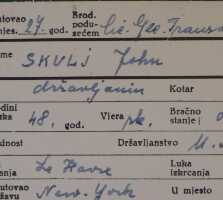 putovao
mjes. 27 god. Brod. podu- zećem cie. Gle. Transa
me SKULJ John
državljanin Kotar
odini
rka 48. god. Vjera rk. Bračno stanje
dnost Državljanstvo U.
nja Le Havre Luka izkrcanja
utovao
žavu New-York U mjesto